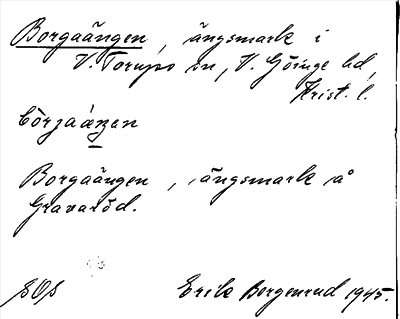 Borgaängen, ängsmark i
V. Torups sn, V. Göinge hd,
Krist. l.
bòrzaáŋen
Borgaängen, ängsmark å
Gravaröd.
SOS Erik Borgenrud 1945.